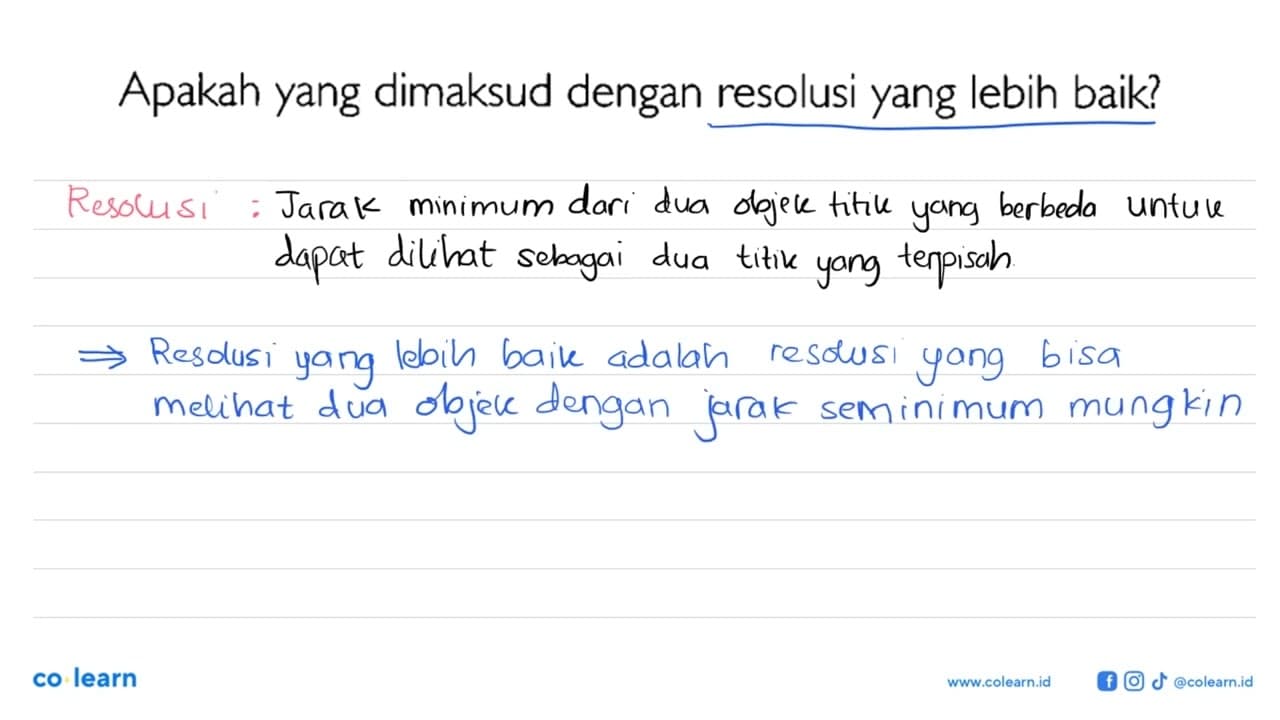 Apakah yang dimaksud dengan resolusi yang lebih baik?
Resolusi : Jarak minimum dari dua objek titik yang berbeda untuk
dapat dilihat sebagai dua titik yang terpisah.
⇒ Resolusi yang lebih baik adalah resolusi yang bisa
melihat dua objek dengan jarak seminimum mungkin
co learn
www.colearn.id
@colearn.id